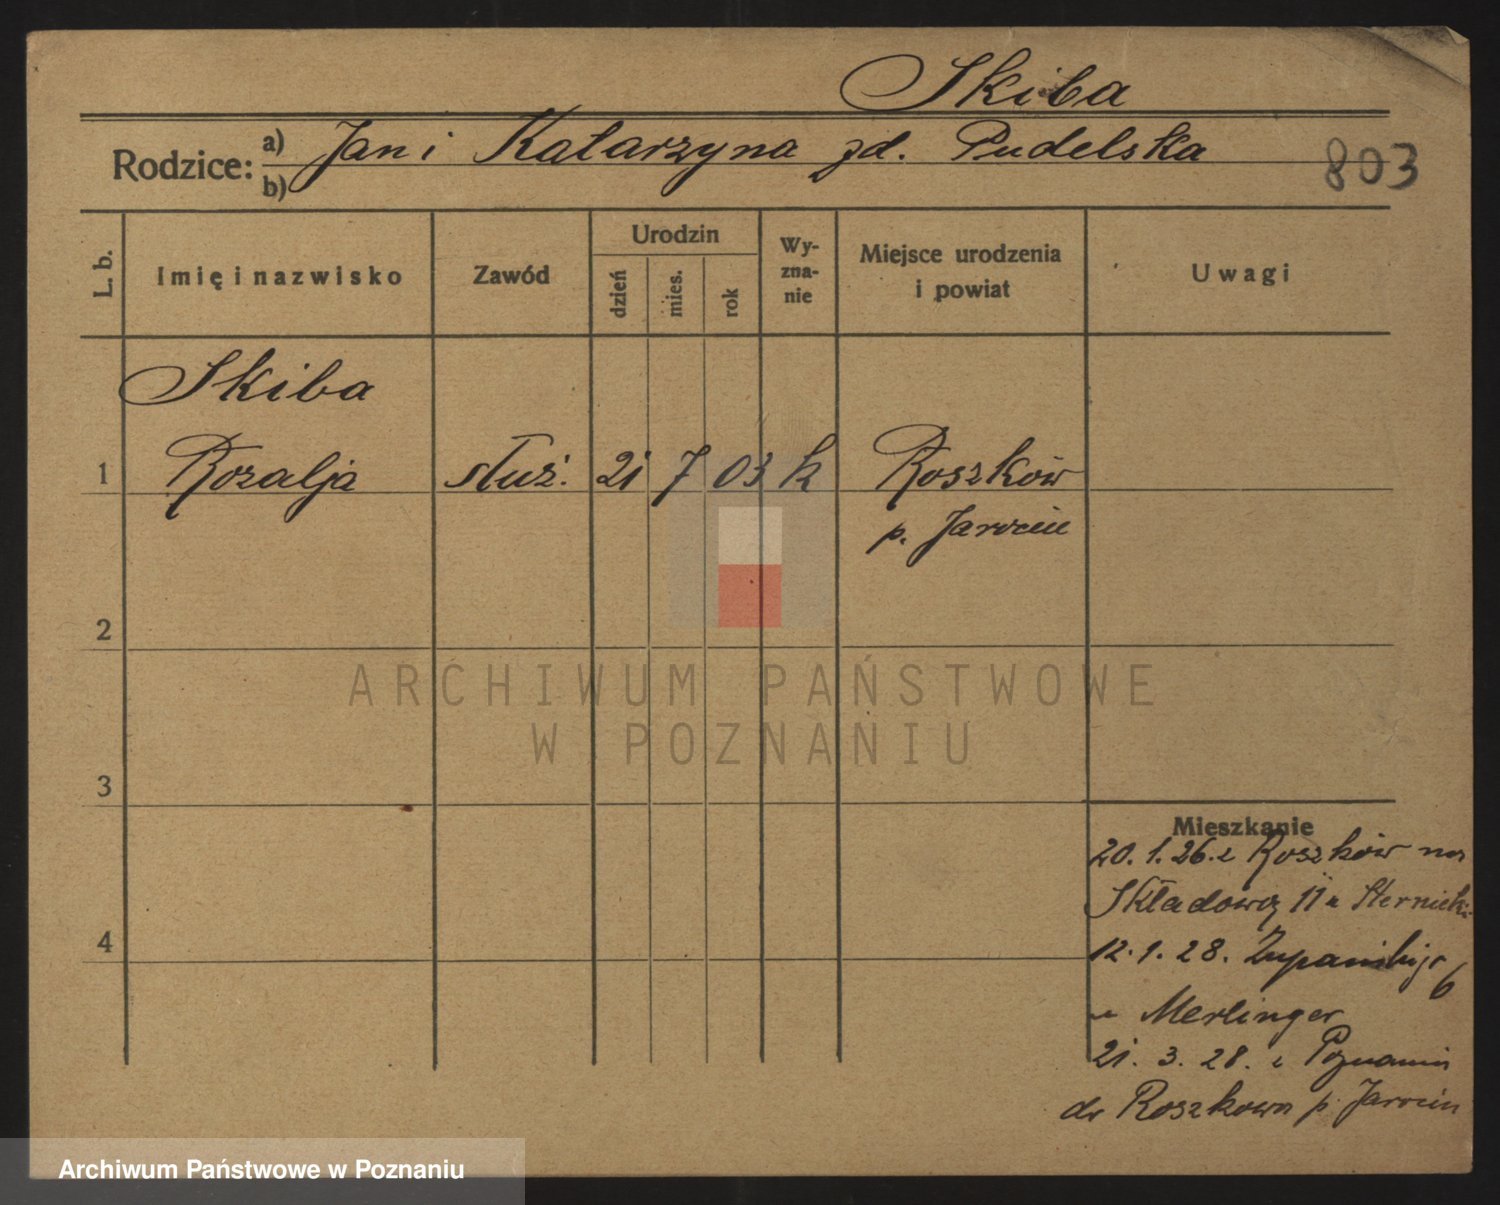 Skiba
Rodzice: a) Jan i Katarzyna zd. Pudelska
b)
803
L. b.
Imię i nazwisko
Zawód
Urodzin
dzień
mies.
rok
Wy-
zna-
nie
Miejsce urodzenia
i powiat
Uwagi
Skiba
1 Rozalja służ. 21 7 03 k Roszków
p. Jarocin
2
3
4
ARCHIWUM PAŃSTWOWE
W POZNANIU
Mieszkanie
20. 1. 26. z Roszków na
Składową 11 u
12. 1. 28. 6
u Merlinger
21. 3. 28. z Poznania
do Roszkowa p. Jarocin
Archiwum Państwowe w Poznaniu